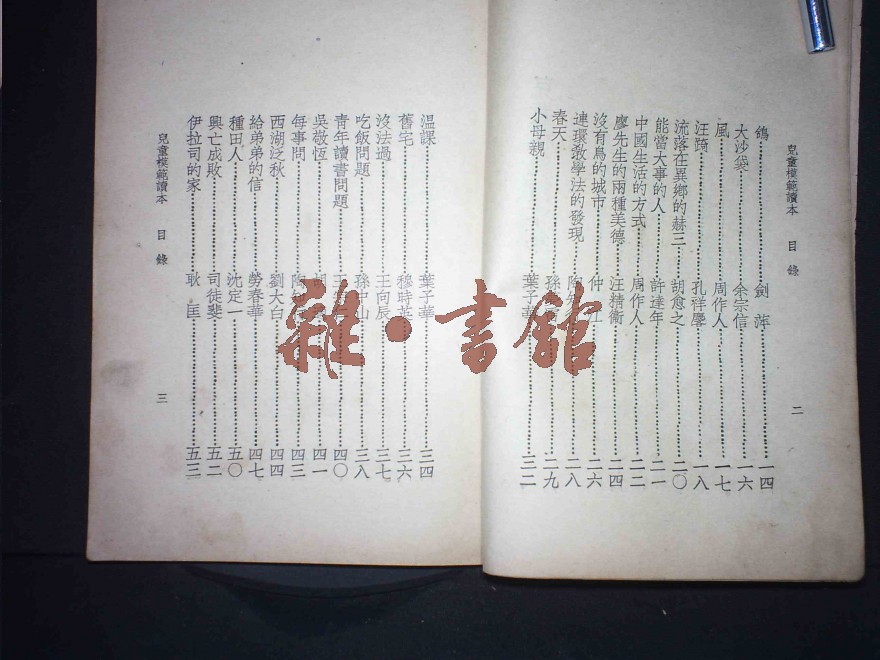 兒童模範讀本 目錄 二
鴿 劍萍 一四
大沙袋 余宗信 一六
風 周作人 一七
汪踦 孔祥麐 一八
流落在異鄉的赫三 胡愈之 二〇
能當大事的人 許達年 二一
中國生活的方式 周作人 二二
廖先生的兩種美德 汪精衛 二四
沒有鳥的城市 仲 江 二六
連環教學法的發現 陶知 二八
春天 孫 二九
小母親 葉子華 三二
溫課 葉子華 三四
舊宅 穆時英 三六
沒法過 王向辰 三七
吃飯問題 孫中山 三八
青年讀書問題 王 四〇
吳敬恆 胡 四一
每事問 陶知 四三
西湖泛秋 劉大白 四四
給弟弟的信 勞春華 四七
種田人 沈定一 五〇
興亡成敗 司徒斐 五二
伊拉司的家 耿匡 五三
兒童模範讀本 目錄 三
雜·書館